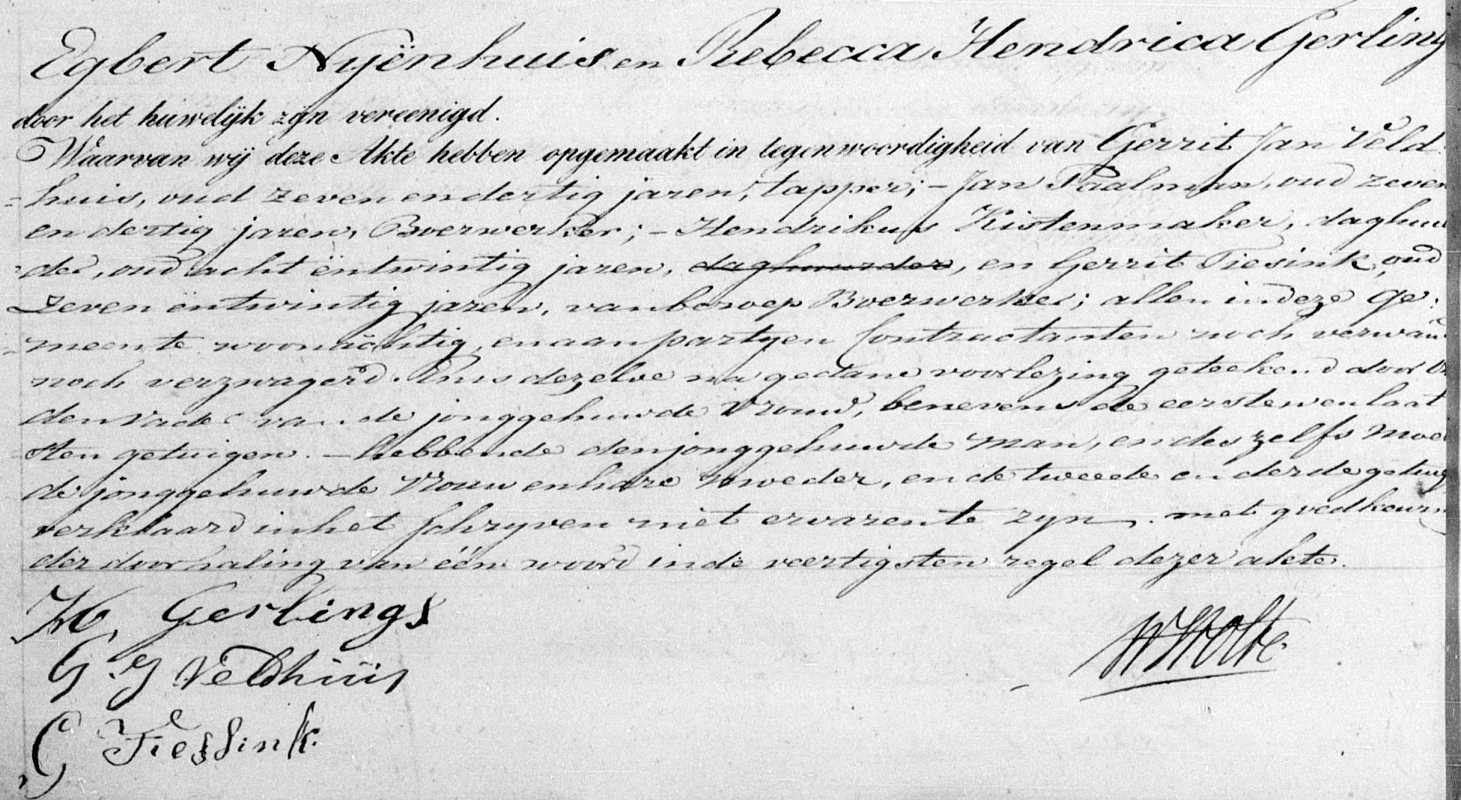 Egbert Nijënhuis en Rebecca Hendrica Gerling
door het huwelijk zijn vereenigd.
Waarvan wij deze Akte hebben opgemaakt in tegenwoordigheid van Gerrit Jan Veld
=huis, oud zeven en dertig jaren, tapper; – Jan Paalman, oud zeven
en dertig jaren, Boerwerker; – Hendrikus Kistenmaker, daghuu
=der, oud acht ëntwintig jaren, daghuurder, en Gerrit Tiesink, oud
zeven ëntwintig jaren, van beroep Boerwerker; allen in deze ge=
=meente woonachtig, en aan partyen Contractanten noch verwan
noch verzwagerd. En is dezelve na gedane voorlezing geteekend door
den vader van de jonggehuwde Vrouw, benevens de eersten en laat
sten getuigen. – hebbende den jonggehuwde man, en des zelfs moe
de jonggehuwde Vrouw en hare moeder, en de tweede en derde getuig
verklaard in het schryven niet ervaren te zyn. met goedkeur
der doorhaling van één woord in de veertigsten regel dezer akte.
H. Gerlings
WHolte
G. J Veldhuis
G Tiessink